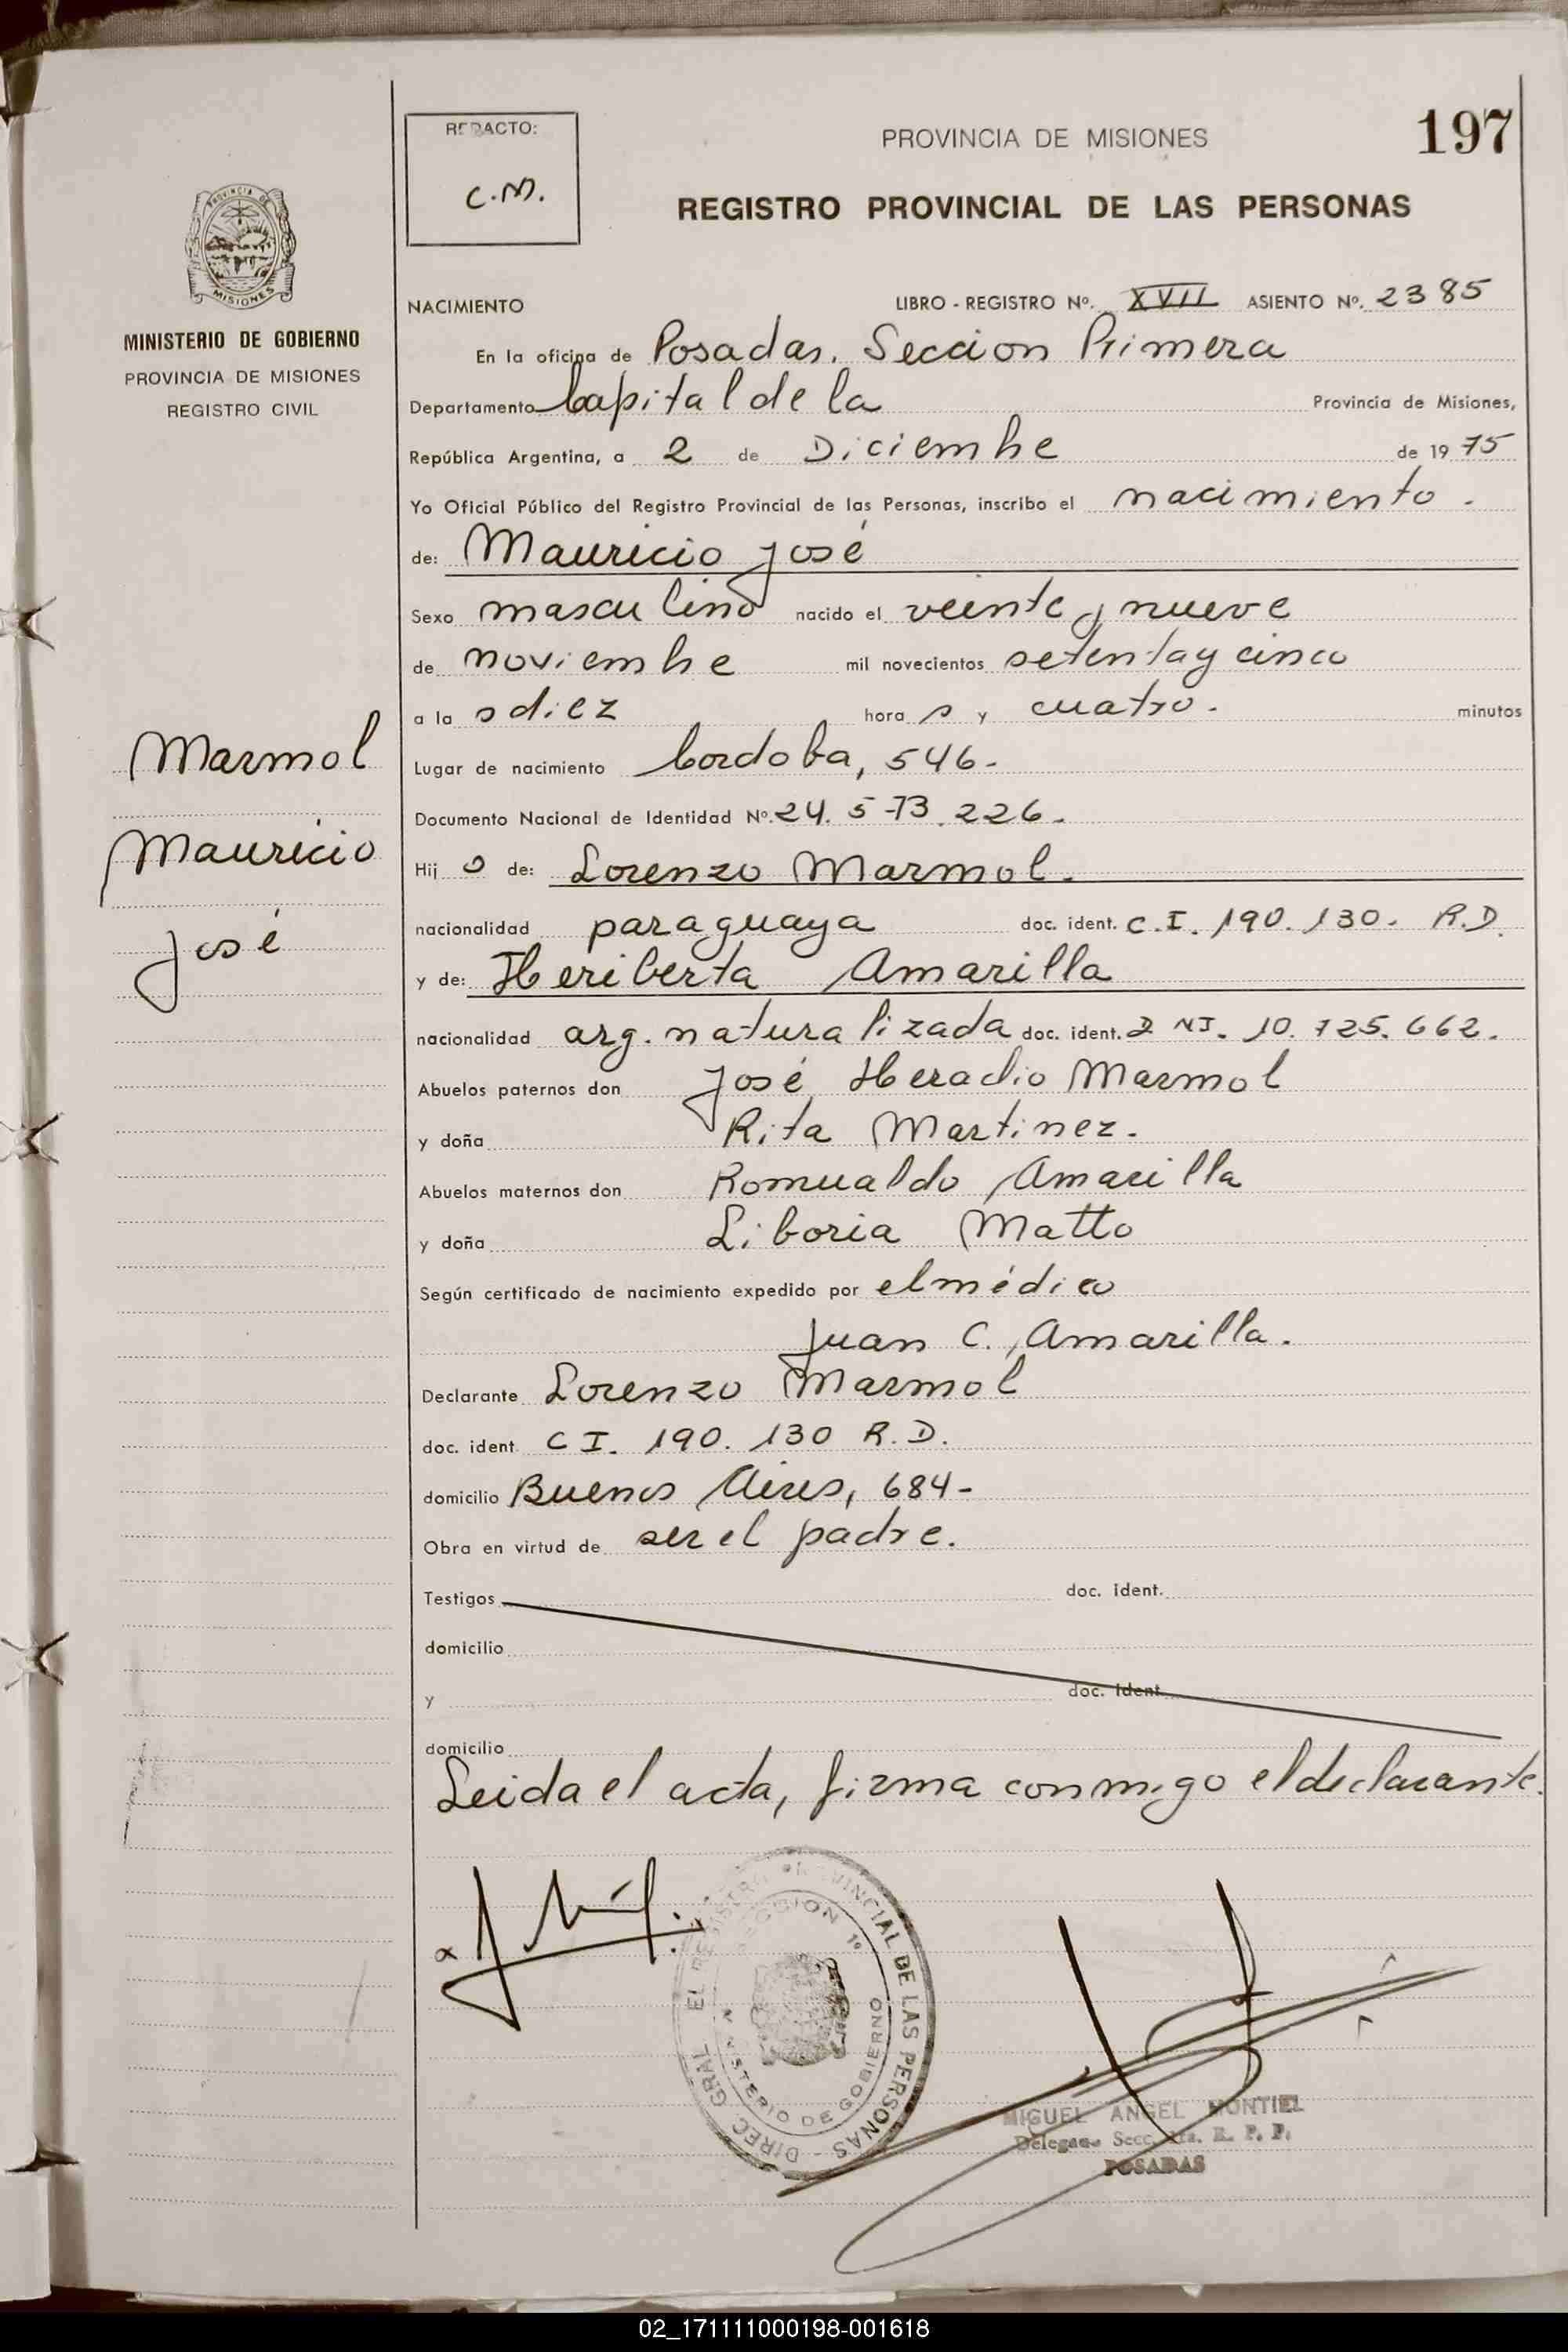 197
REDACTO:
C.M.
PROVINCIA DE MISIONES
REGISTRO PROVINCIAL DE LAS PERSONAS
PROVINCIA DE
MISIONES
MINISTERIO DE GOBIERNO
PROVINCIA DE MISIONES
REGISTRO CIVIL
NACIMIENTO LIBRO - REGISTRO Nº. XVII ASIENTO Nº. 2385
En la oficina de Posadas. Seccion Primera
Departamento Capital de la Provincia de Misiones,
República Argentina, a 2 de Diciembre de 1975
Yo Oficial Público del Registro Provincial de las Personas, inscribo el nacimiento.
de: Mauricio José
Sexo masculino nacido el veinte y nueve
de noviembre mil novecientos setenta y cinco
a la s diez hora s y cuatro. minutos
Marmol
Mauricio
José
Lugar de nacimiento Cordoba, 546.-
Documento Nacional de Identidad Nº. 24.573.226.
Hij o de: Lorenzo Marmol.
nacionalidad paraguaya doc. ident. C.I. 190.130. R.D.
y de: Heriberta Amarilla
nacionalidad arg. naturalizada doc. ident. DNI. 10.725.662.
Abuelos paternos don José Heraclio Marmol
y doña Rita Martinez.
Abuelos maternos don Romualdo Amarilla
y doña Liboria Matto
Según certificado de nacimiento expedido por el médico
Juan C. Amarilla.
Declarante Lorenzo Marmol
doc. ident. C I. 190. 130 R.D.
domicilio Buenos Aires, 684-
Obra en virtud de ser el padre.
Testigos doc. ident.
domicilio
y doc. ident.
domicilio
Leida el acta, firma conmigo el declarante.
DIREC. GRAL. EL REGISTRO PROVINCIAL DE LAS PERSONAS -
SECCION 1º
MINISTERIO DE GOBIERNO
MIGUEL ANGEL MONTIEL
Delegado Secc. 1ra. R. P. P.
POSADAS
02_171111000198-001618